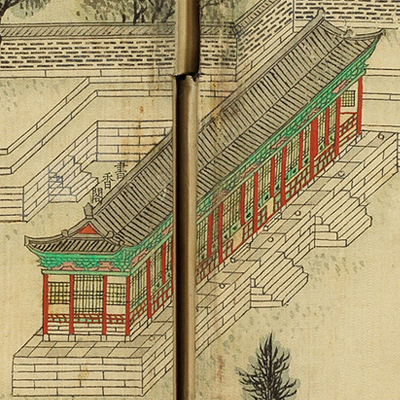 書香閣